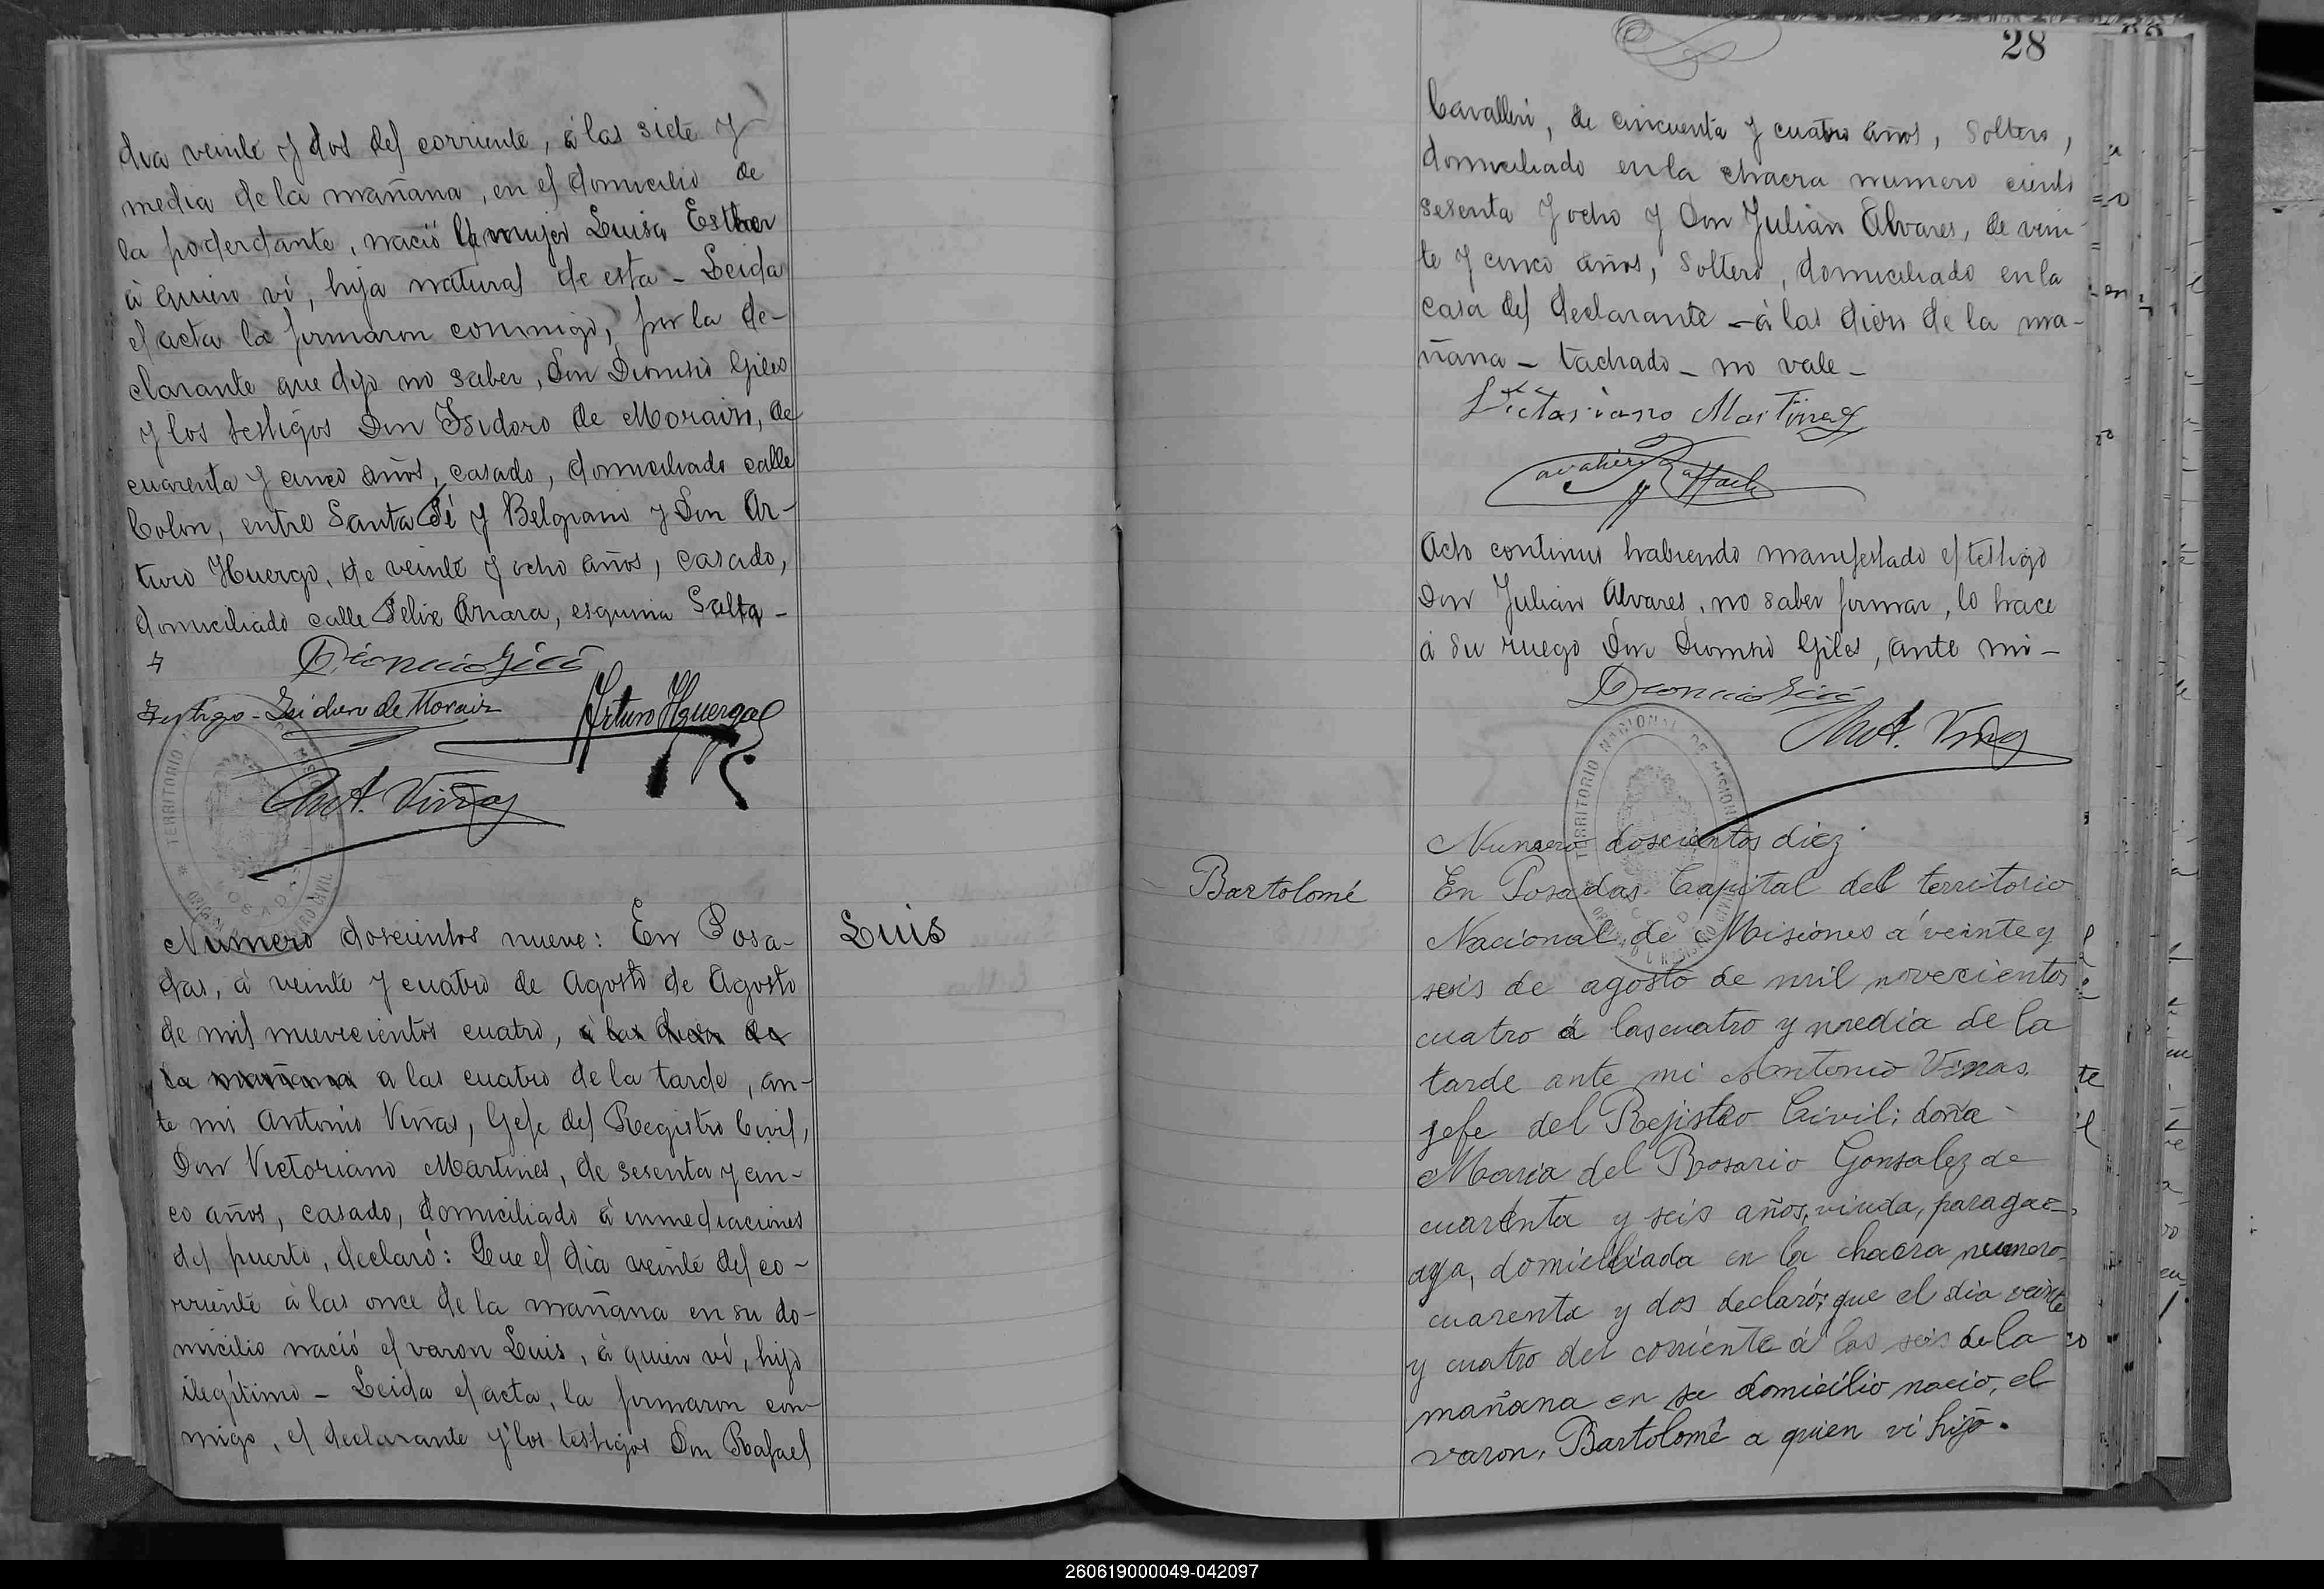 dia veinte y dos del corriente, á las siete y
media de la mañana, en el domicilio de
la poderdante, nació la mujer Luisa Esther
á quien ví, hija natural de esta - Leida
el acta la firmaron conmigo, por la de-
clarante que dijo no saber, Don Dionisio Giles
y los testigos Don Isidoro de Morais, de
cuarenta y cinco años, casado, domiciliado calle
Colon, entre Santa Fé y Belgrano y Don Ar-
turo Huergo, de veinte y ocho años, casado,
domiciliado calle Felix Azara, esquina Salta -
Dionicio Gilé
Testigo - Isidoro de Morais
Arturo Huergo
Ant. Viñas
TERRITORIO
POSADAS
Numero doscientos nueve: En Posa-
das, á veinte y cuatro de Agosto de Agosto
de mil nuevecientos cuatro, á las diez de
la mañana a las cuatro de la tarde, an-
te mi Antonio Viñas, Gefe del Registro Civil,
Don Victoriano Martines, de sesenta y cin-
co años, casado, domiciliado á inmediaciones
del puerto, declaró: Que el dia veinte del co-
rriente á las once de la mañana en su do-
micilio nació el varon Luis, á quien ví, hijo
ilegítimo - Leida el acta, la firmaron con-
migo, el declarante y los testigos Don Rafael
Luis
28
Cavalleri, de cincuenta y cuatro años, soltero,
domiciliado en la chacra numero ciento
sesenta y ocho y Don Julian Alvares, de vein-
te y cinco años, soltero, domiciliado en la
casa del declarante - á las diers de la ma-
ñana - tachado - no vale -
Victoriano Martinez
Cavalieri Raffaele
Acto continuo habiendo manifestado el testigo
Don Julian Alvares, no saber firmar, lo hace
á su ruego Don Dionisio Giles, ante mi -
Dionicio Gilé
Ant. Viñas
TERRITORIO NACIONAL DE MISIONES
Numero doscientos diez
Bartolomé
En Posadas Capital del territorio
Nacional de Misiones á veinte y
seis de agosto de mil novecientos
cuatro á las cuatro y media de la
tarde ante mi Antonio Vinas.
jefe del Rejistro Civil: doña
Maria del Rosario Gonsalez de
cuarenta y seis años, viuda, paragua-
aya, domiciliada en la chacra numero
cuarenta y dos declaró; que el dia veinte
y cuatro del corriente á las seis de la
mañana en su domicilio nacio, el
varon, Bartolomé a quien vi hijo.
260619000049-042097